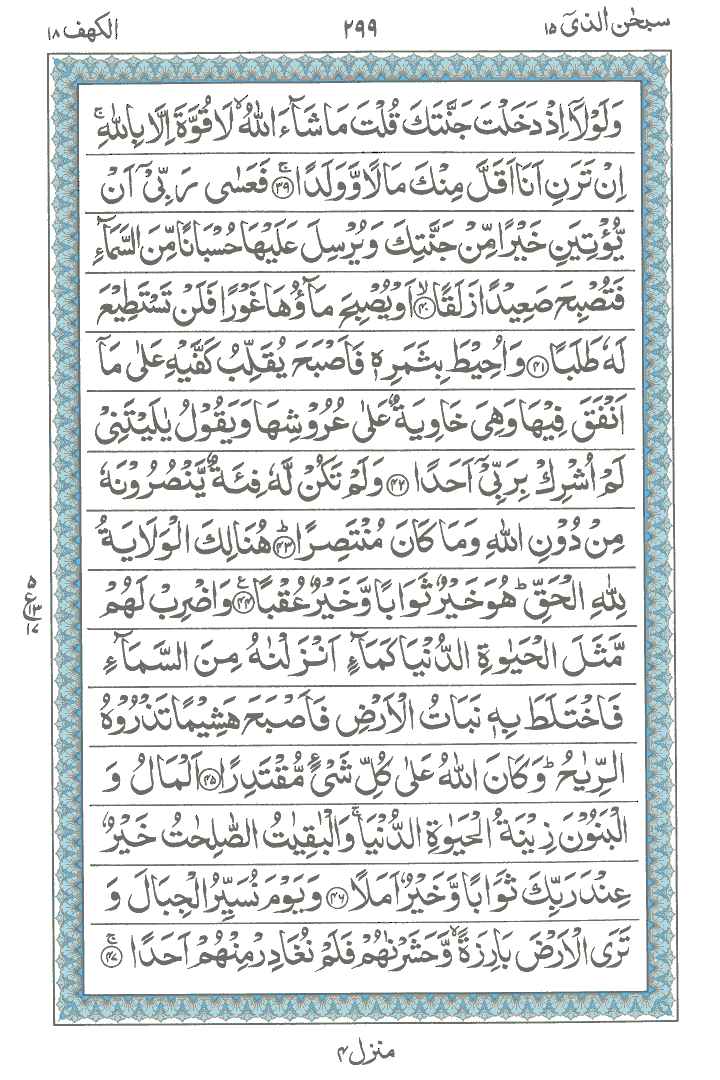 سبحٰن الذیٓ ۱۵
۲۹۹
الكهف ۱۸
وَلَوْلَاۤ اِذْ دَخَلْتَ جَنَّتَكَ قُلْتَ مَا شَآءَ اللّٰهُ ۙ لَا قُوَّةَ اِلَّا بِاللّٰهِ ۚ
اِنْ تَرَنِ اَنَا اَقَلَّ مِنْكَ مَالًا وَّوَلَدًا ۚ ﴿۳۹﴾ فَعَسٰی رَبِّیْۤ اَنْ
یُّؤْتِیَنِ خَیْرًا مِّنْ جَنَّتِكَ وَیُرْسِلَ عَلَیْهَا حُسْبَانًا مِّنَ السَّمَآءِ
فَتُصْبِحَ صَعِیْدًا زَلَقًا ۙ ﴿۴۰﴾ اَوْ یُصْبِحَ مَآؤُهَا غَوْرًا فَلَنْ تَسْتَطِیْعَ
لَهٗ طَلَبًا ﴿۴۱﴾ وَاُحِیْطَ بِثَمَرِهٖ فَاَصْبَحَ یُقَلِّبُ كَفَّیْهِ عَلٰی مَاۤ
اَنْفَقَ فِیْهَا وَهِیَ خَاوِیَةٌ عَلٰی عُرُوْشِهَا وَیَقُوْلُ یٰلَیْتَنِیْ
لَمْ اُشْرِكْ بِرَبِّیْۤ اَحَدًا ﴿۴۲﴾ وَلَمْ تَكُنْ لَّهٗ فِئَةٌ یَّنْصُرُوْنَهٗ
مِنْ دُوْنِ اللّٰهِ وَمَا كَانَ مُنْتَصِرًا ؕ ﴿۴۳﴾ هُنَالِكَ الْوَلَایَةُ
لِلّٰهِ الْحَقِّ ؕ هُوَ خَیْرٌ ثَوَابًا وَّخَیْرٌ عُقْبًا ﴿۴۴﴾ وَاضْرِبْ لَهُمْ
۵
ع ۱۳
۱۷
مَّثَلَ الْحَیٰوةِ الدُّنْیَا كَمَآءٍ اَنْزَلْنٰهُ مِنَ السَّمَآءِ
فَاخْتَلَطَ بِهٖ نَبَاتُ الْاَرْضِ فَاَصْبَحَ هَشِیْمًا تَذْرُوْهُ
الرِّیٰحُ ؕ وَكَانَ اللّٰهُ عَلٰی كُلِّ شَیْءٍ مُّقْتَدِرًا ﴿۴۵﴾ اَلْمَالُ وَ
الْبَنُوْنَ زِیْنَةُ الْحَیٰوةِ الدُّنْیَا ۚ وَالْبٰقِیٰتُ الصّٰلِحٰتُ خَیْرٌ
عِنْدَ رَبِّكَ ثَوَابًا وَّخَیْرٌ اَمَلًا ﴿۴۶﴾ وَیَوْمَ نُسَیِّرُ الْجِبَالَ وَ
تَرَی الْاَرْضَ بَارِزَةً ۙ وَّحَشَرْنٰهُمْ فَلَمْ نُغَادِرْ مِنْهُمْ اَحَدًا ۚ ﴿۴۷﴾
منزل ۴